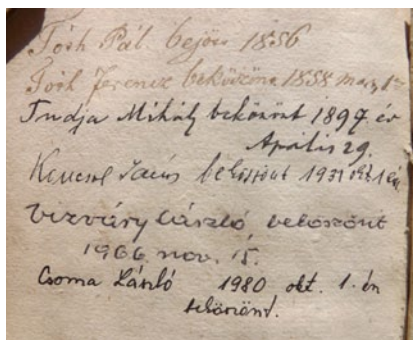 Tóth Pál bejött 1856
Tóth Ferencz beköszönt 1858 marz. 1
Tudja Mihály bekönönt 1897. év
Április 29.
János beköszönt 1931 okt. 1 én
Vizváry László beköszönt
1966. nov. 15.
Csoma László 1980 okt. 1. én
beköszönt.